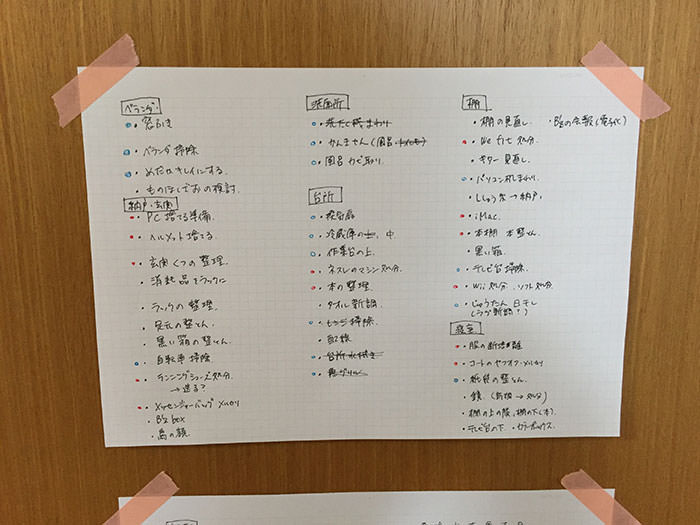 ベランダ
・窓ふき
・ベランダ掃除
・めだかキレイにする
・ものほしざおの検討
納戸・玄関
・PC捨てる準備
・ヘルメット捨てる
・玄関くつの整理
・消耗品をラックに
・ラックの整理
・足元の整とん
・黒い箱の整とん
・自転車掃除
・ランニングシューズ処分
→送る?
・メッセンジャーバッグ メルカリ
・B'z box
・鳥の額
洗面所
・洗たく機まわり
・かんきせん(風呂
・風呂カビ取り
台所
・換気扇
・冷蔵庫の上、中
・作業台の上
・ネスレのマシン処分
・本の整理
・タオル新調
・レンジ掃除
・配線
・台所水垢
棚
・棚の見直し
・B'zの会報(電子化)
・We fit 処分
・ギター見直し
・パソコン机まわり
・iMac
・本棚 本整とん
・黒い箱
・テレビ台掃除
・Wii処分 ソフト処分
・じゅうたん 日干し
(ラグ新調?)
寝室
・服の断捨離
・コートのヤフオク・メルカリ
・紙袋の整とん
・鏡
・棚の上の服、棚の下(本)
・テレビ台の下 ・カラーボックス